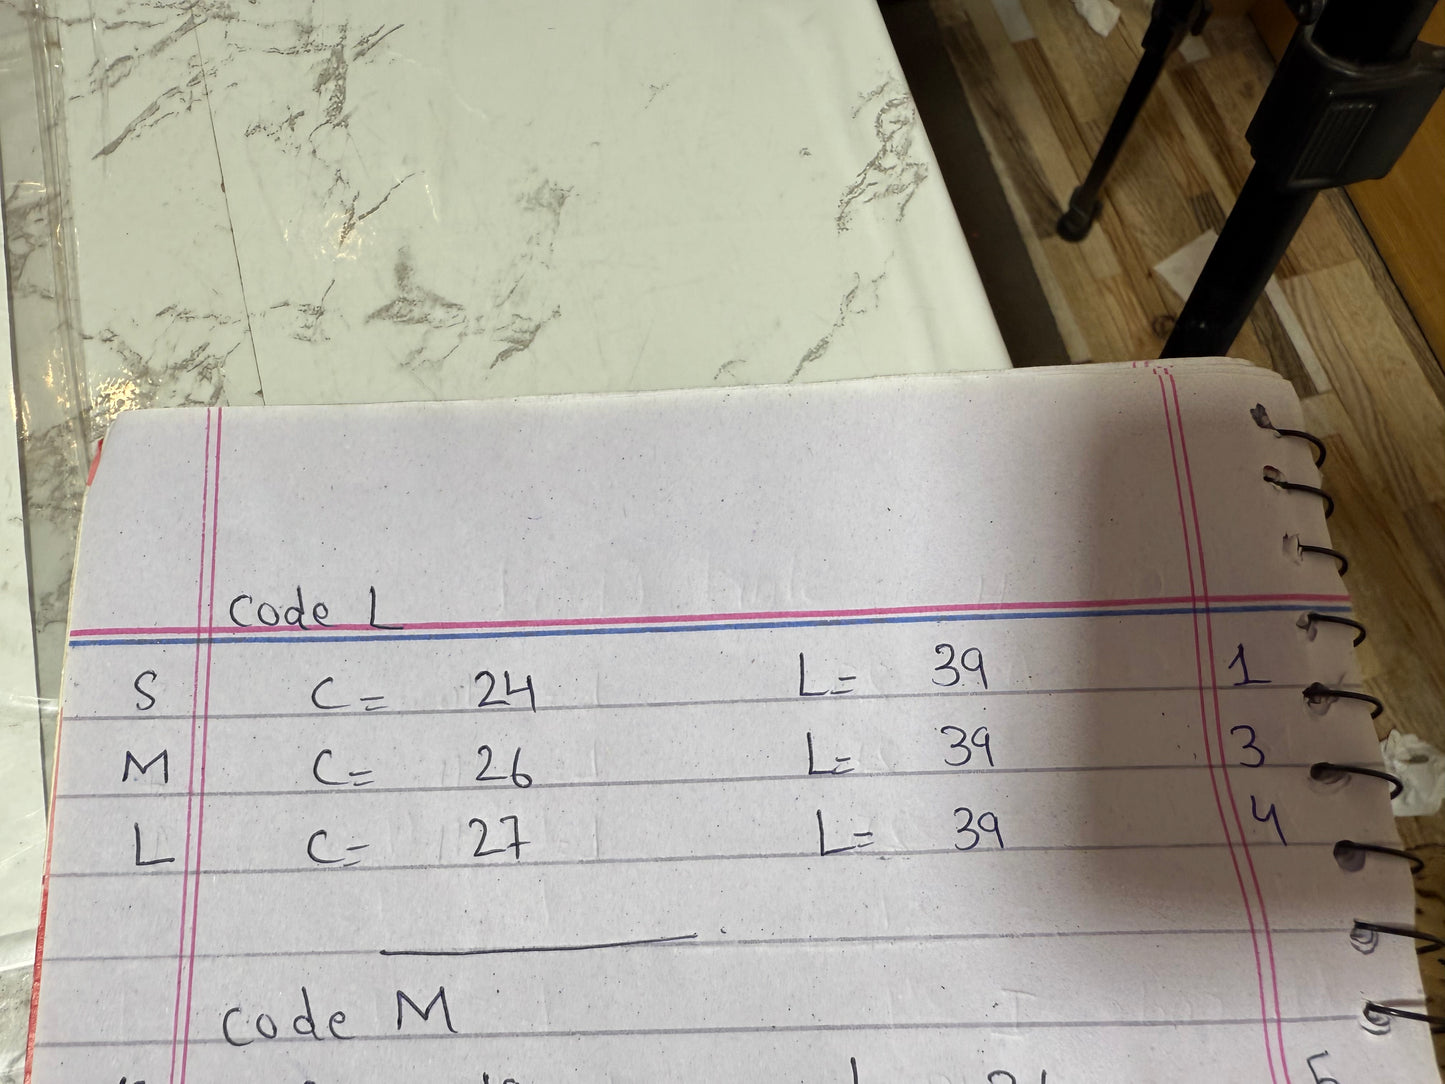 Code L
S C= 24 L= 39 1
M C= 26 L= 39 3
L C= 27 L= 39 4
code M